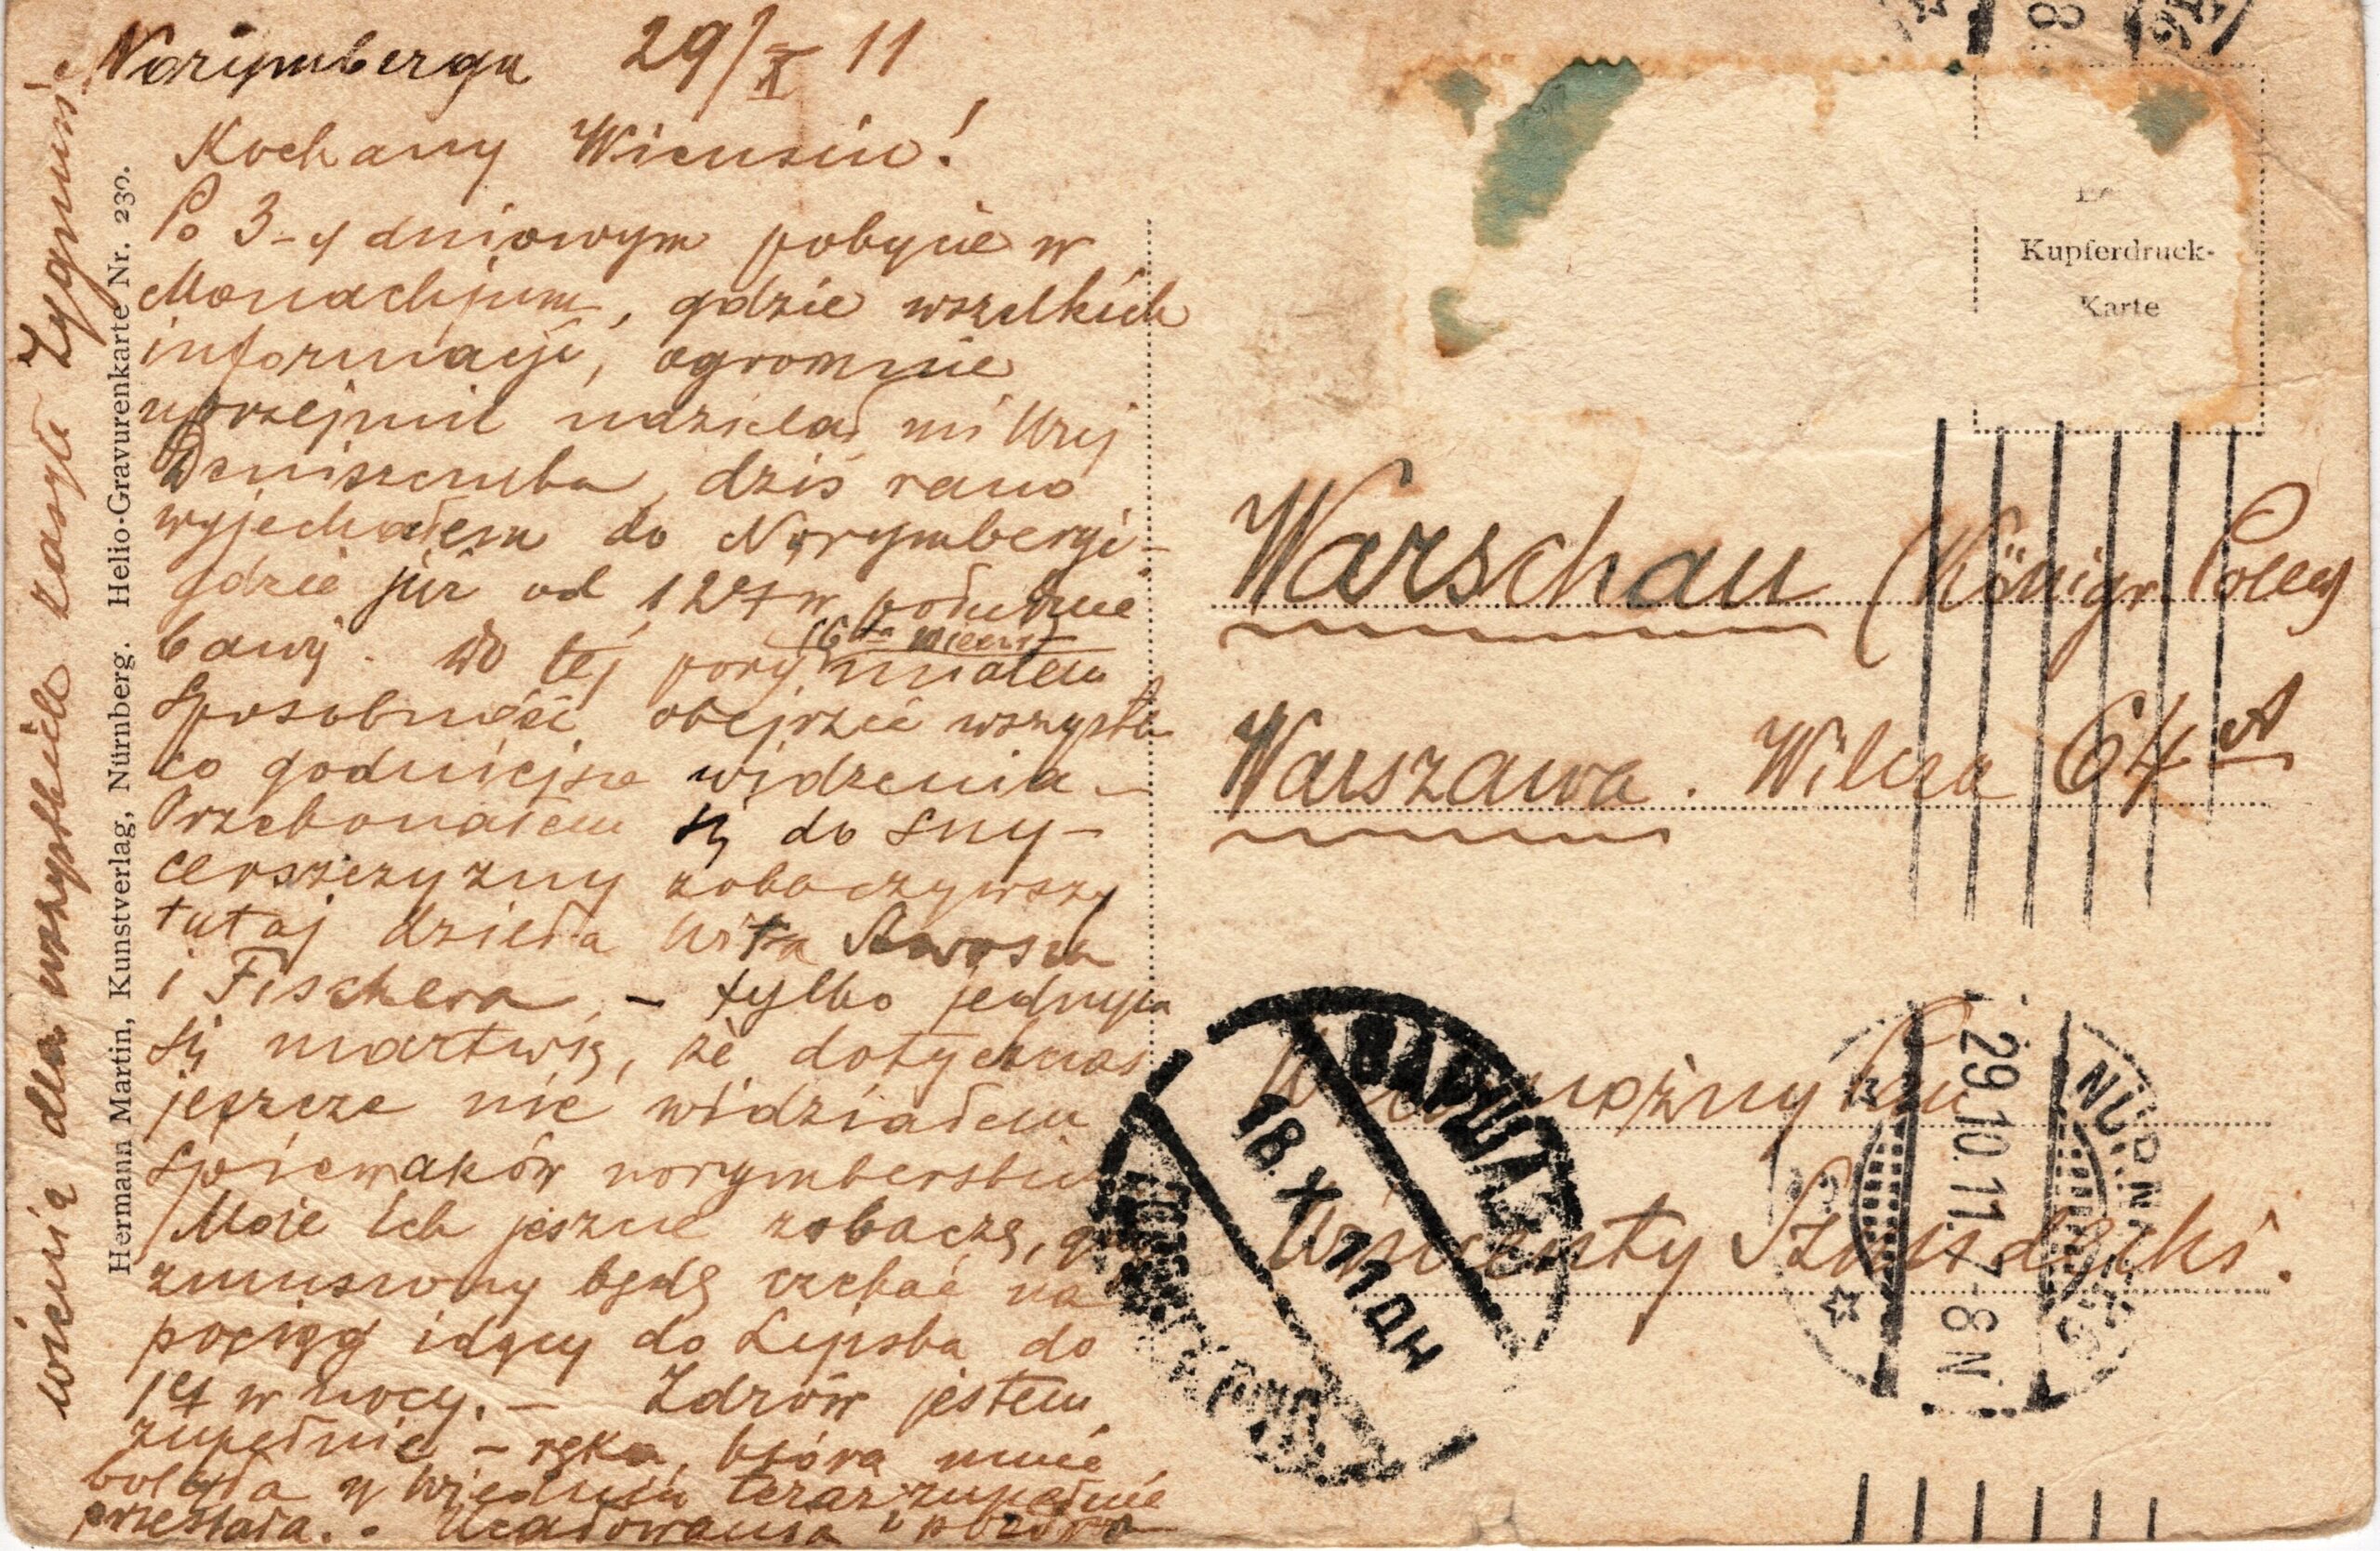 Norymberga 29/X 11
Kochany Wicusiu!
Po 3-y dniowym pobycie w
Monachjum, gdzie wszelkich
informacji, ogromnie
uprzejmie udzielał mi Urej
dziś rano
wyjechałem do Norymbergi –
gdzie już od 12ej w południe
bawię. Do tej pory
16ta
miałem
sposobność obejrzeć wszystko
co godniejsze widzenia –
Przekonałem się do sny-
cerszczyzny zobaczywszy
tutaj dzieła Wita Stwosza
i Fischera, – tylko jednym
się martwię, że dotychczas
jeszcze nie widziałem
śpiewaków norymberskich
Może ich jeszcze zobaczę, gdy
zmuszony będę czekać na
pociąg idący do Lipska do
1ej w nocy. – Zdrów jestem
zupełnie – ręka, która mnie
bolała w Wiedniu teraz zupełnie
przestała. – Ucałowania i pozdro-
wienia dla wszystkich zasyła Zygmunt
Hermann Martin, Kunstverlag, Nürnberg. Helio-Gravurenkarte Nr. 230.
Kupferdruck-
Karte
Warschau (Königr. Polen)
Warszawa. Wilcza 64A
Wielmożny Pan
Wincenty
ВАРШАВА
18.X.11 ДН
NÜRNBERG
29.10.11.7-8N
8